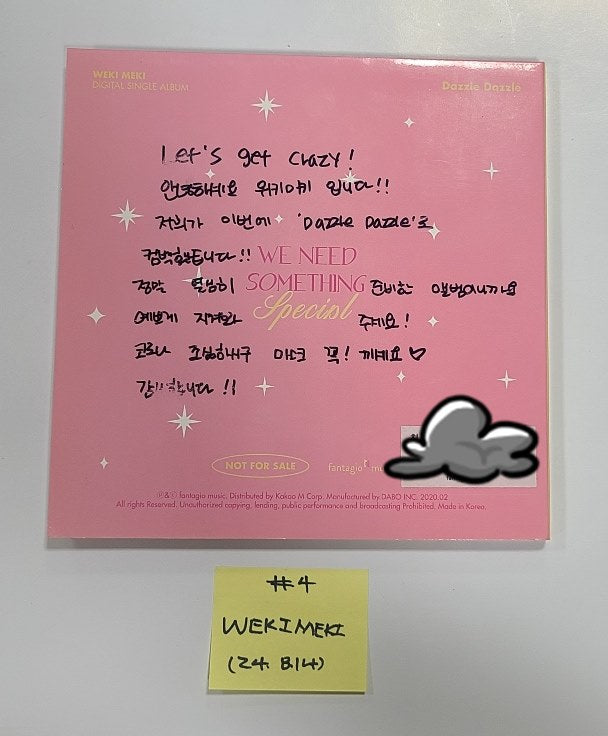 WEKI MEKI
DIGITAL SINGLE ALBUM
Dazzle Dazzle
Let's get crazy!
안녕하세요 위키미키 입니다!!
저희가 이번에 'Dazzle Dazzle'로
컴백했습니다!!
WE NEED
정말 열심히 준비한 앨범이니까요
SOMETHING
예쁘게 지켜봐 주세요!
Special
코로나 조심하시구 마스크 꼭! 끼세요♡
감사합니다!!
NOT FOR SALE
fantagio
℗&© fantagio music. Distributed by Kakao M Corp. Manufactured by DABO INC. 2020.02
All rights Reserved. Unauthorized copying, lending, public performance and broadcasting Prohibited. Made in Korea.
#4
WEKIMEKI
(24. 8.14)